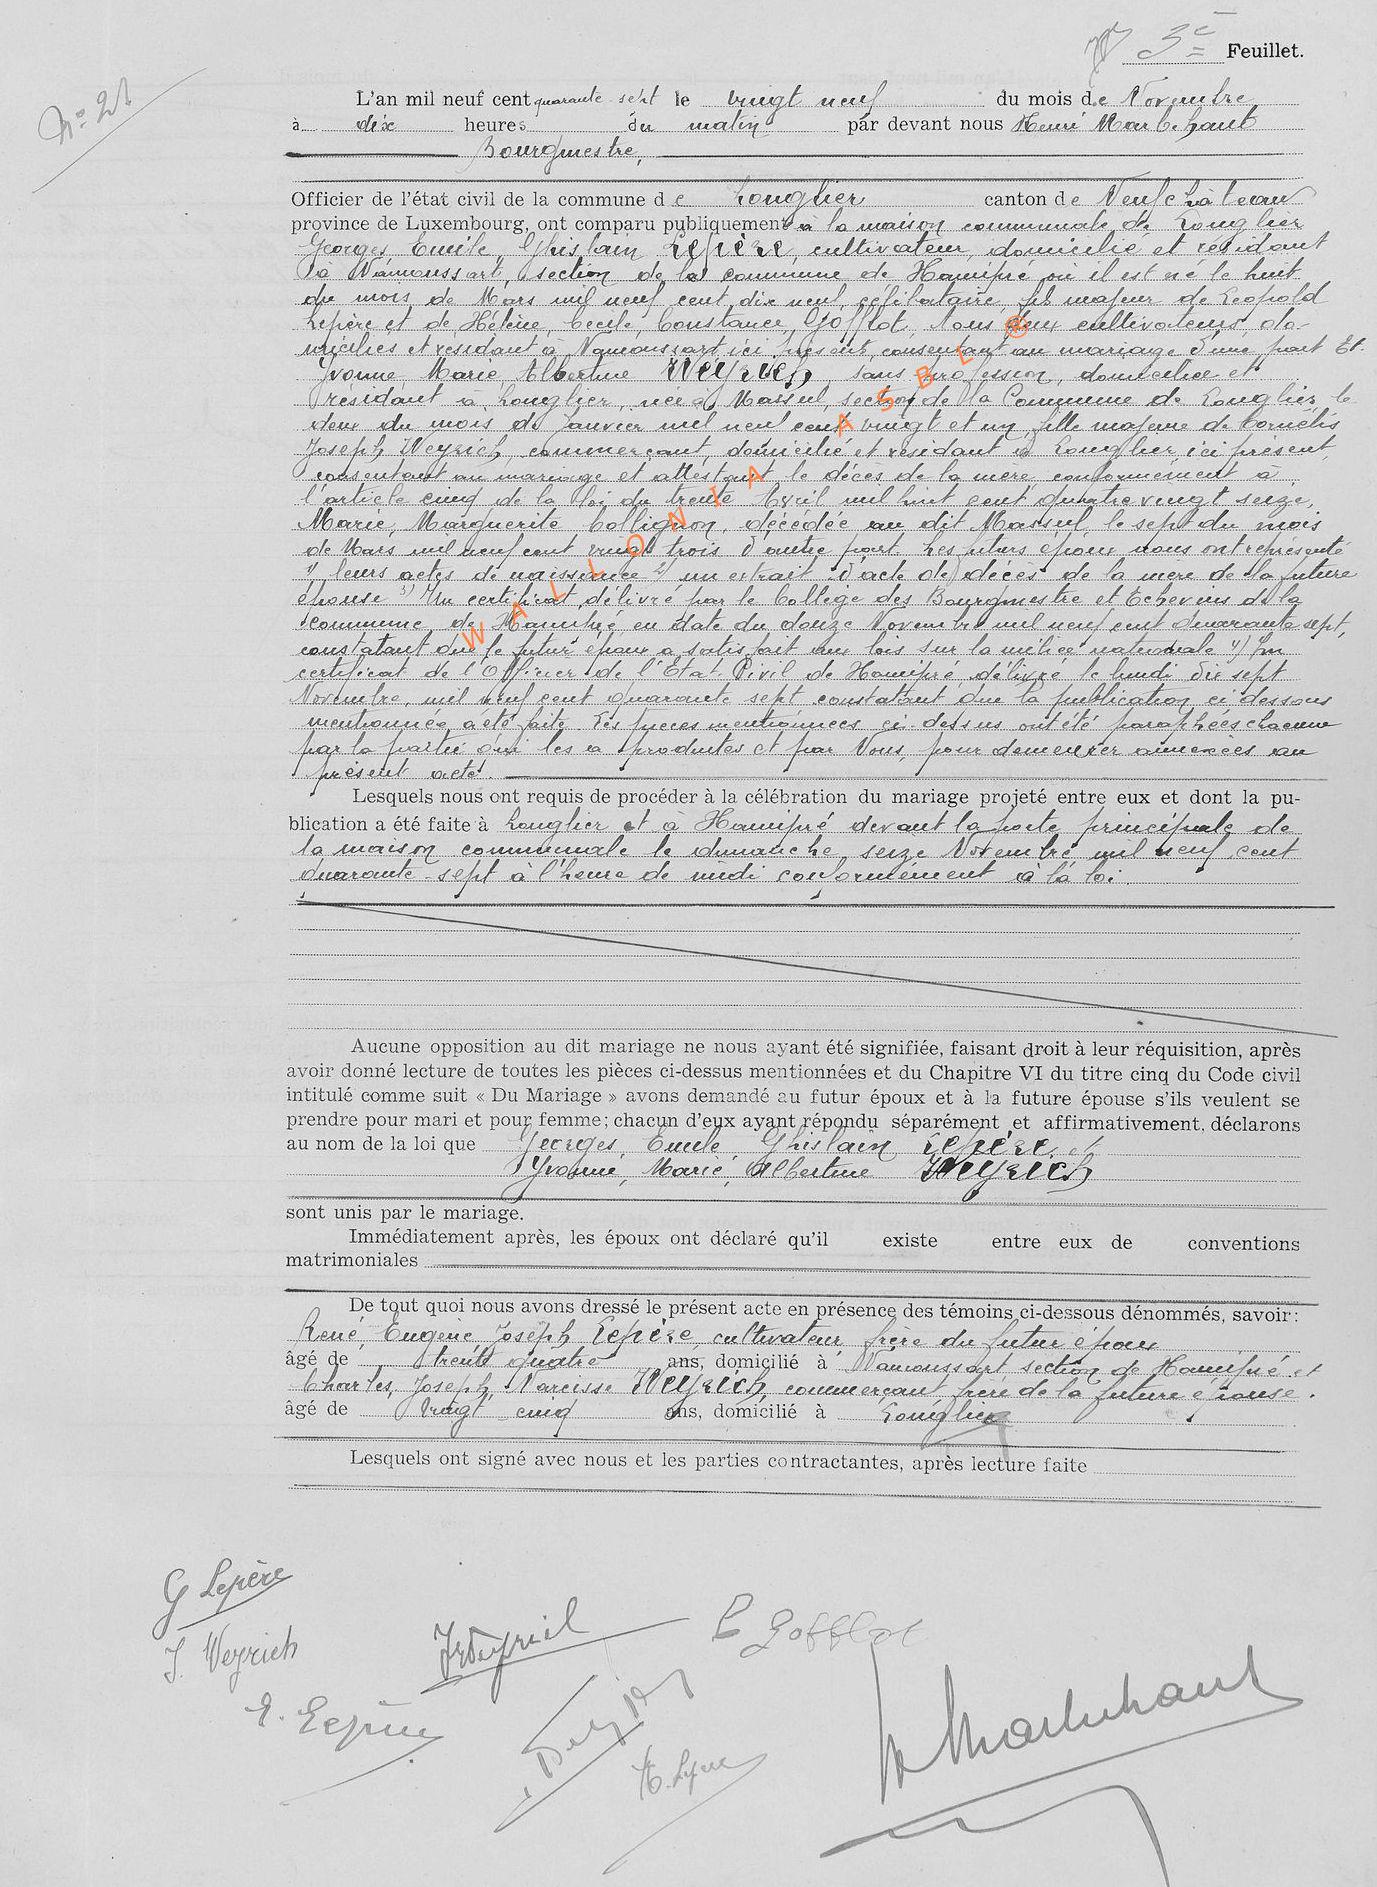 3e Feuillet.
No 21
L'an mil neuf cent quarante sept le vingt neuf du mois de Novembre
à dix heures du matin par devant nous Henri Marbehant
Bourgmestre,
Officier de l'état civil de la commune de Longlier canton de Neufchâteau
province de Luxembourg, ont comparu publiquement à la maison communale de Longlier
Georges, Emile, Ghislain Lepère, cultivateur, domicilié et résidant
à Namoussart, section de la commune de Hamipré où il est né le huit
du mois de Mars mil neuf cent dix neuf, célibataire, fils majeur de Léopold
Lepère et de Hélène, Cécile, Constance, Gofflot, tous deux cultivateurs do-
miciliés et résidant à Namoussart, ici présents, consentant au mariage d'une part Et
Yvonne, Marie, Albertine Weyrich, sans profession, domiciliée et
résidant à Longlier, née à Massul, section de la Commune de Longlier, le
deux du mois de Janvier mil neuf cent vingt et un, fille majeure de Cornélis
Joseph Weyrich, commerçant, domicilié et résidant à Longlier, ici présent,
consentant au mariage et attestant le décès de la mère conformément à
l'article cinq de la loi du trente Avril mil huit cent quatre vingt seize,
Marie, Marguerite Collignon, décédée au dit Massul, le sept du mois
de Mars mil neuf cent vingt trois d'autre part. Les futurs époux nous ont représenté
1) leurs actes de naissance 2) un extrait d'acte de décès de la mère de la future
épouse 3) Un certificat délivré par le Collège des Bourgmestre et Echevins de la
commune de Hamipré en date du douze Novembre mil neuf cent quarante sept,
constatant que le futur époux a satisfait aux lois sur la milice nationale 4) Un
certificat de l'Officier de l'Etat Civil de Hamipré délivré le lundi dix sept
Novembre, mil neuf cent quarante sept constatant que la publication ci-dessous
mentionnée a été faite. Les pièces mentionnées ci-dessus ont été paraphées chacune
par la partie qui les a produites et par Nous, pour demeurer annexées au
présent acte.
Lesquels nous ont requis de procéder à la célébration du mariage projeté entre eux et dont la pu-
blication a été faite à Longlier et à Hamipré devant la porte principale de
la maison communale le dimanche seize Novembre mil neuf cent
quarante-sept à l'heure de midi conformément à la loi.
Aucune opposition au dit mariage ne nous ayant été signifiée, faisant droit à leur réquisition, après
avoir donné lecture de toutes les pièces ci-dessus mentionnées et du Chapitre VI du titre cinq du Code civil
intitulé comme suit « Du Mariage » avons demandé au futur époux et à la future épouse s'ils veulent se
prendre pour mari et pour femme; chacun d'eux ayant répondu séparément et affirmativement, déclarons
au nom de la loi que Georges, Emile, Ghislain Lepère et
Yvonne, Marie, Albertine Weyrich
sont unis par le mariage.
Immédiatement après, les époux ont déclaré qu'il existe entre eux de conventions
matrimoniales
De tout quoi nous avons dressé le présent acte en présence des témoins ci-dessous dénommés, savoir:
René, Eugène, Joseph Lepère, cultivateur, frère du futur époux
âgé de trente quatre ans, domicilié à Namoussart section de Hamipré et
Charles, Joseph, Narcisse Weyrich, commerçant, frère de la future épouse.
âgé de vingt cinq ans, domicilié à Longlier
Lesquels ont signé avec nous et les parties contractantes, après lecture faite
G Lepère
Y. Weyrich
C Gofflot
Marbehant
WALLONIA ASBL ®